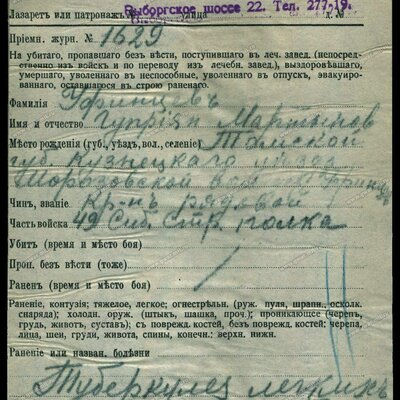 Выборгское шоссе 22. Тел. 277-19.
Лазарет или патронаж улица д. №
Пріемн. журн. № 1629
На убитаго, пропавшаго без вѣсти, поступившаго в леч. завед. (непосред-
ственно из войск и по переводу из лечебн. завед.), выздоровѣвшаго,
умершаго, уволеннаго в неспособные, уволеннаго в отпуск, эвакуиро-
ваннаго, оставшагося в строю раненаго.
Фамилія Уфинцевъ
Имя и отчество Гупріян Мартынов
Мѣсто рожденія (губ., уѣзд, вол., селеніе) Томской
губ. Кузнецкаго уѣзда
Морозовской вол.
Чин, званіе Кр-нъ рядовой
Часть войска 49 Сиб. Стр. полка
Убит (время и мѣсто боя)
Проп. без вѣсти (тоже)
Ранен (время и мѣсто боя)
Раненіе, контузія; тяжелое, легкое; огнестрѣльн. (руж. пуля, шрапн., осколк.
снаряда); холодн. оруж. (штык, шашка, проч.); проникающее (черепъ,
грудь, живот, сустав); с поврежд. костей, без поврежд. костей: черепа,
лица, шеи, груди, живота, спины, конечн.: верхн. нижн.
Раненіе или назван. болѣзни
Туберкулез легкихъ